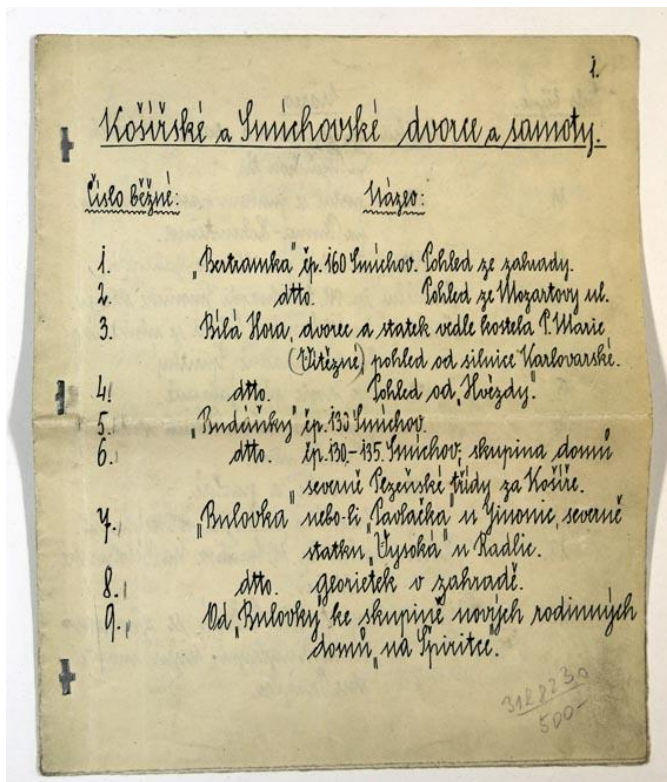 1.
Košířské a Smíchovské dvorce a samoty.
Číslo běžné: Název:
1. „Bertramka" čp. 160 Smíchov. Pohled ze zahrady.
2. dtto. Pohled ze Mozartovy ul.
3. Bílá Hora, dvorec a statek vedle kostela P. Marie
(Vítězné) pohled od silnice Karlovarské.
4. dtto. Pohled od „Hvězdy".
5. „Budáňky" čp. 133 Smíchov.
6. dtto. čp. 130-135. Smíchov; skupina domů
severně Plzeňské třídy za Košíře.
7. „Bulovka" nebo-li „Pavlačka" u Jinonic, severně
statku „Vysoká" u Radlic.
8. dtto. georietek v zahradě.
9. Od „Bulovky" ke skupině nových rodinných
domů „na Špiritce".
3128230
500-